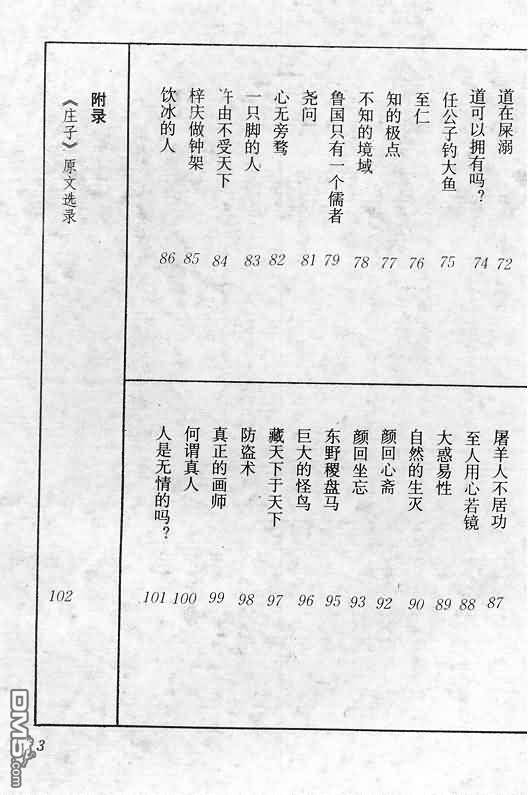 道在屎溺 72
道可以拥有吗？ 74
任公子钓大鱼 75
至仁 76
知的极点 77
不知的境域 78
鲁国只有一个儒者 79
尧问 81
心无旁骛 82
一只脚的人 83
许由不受天下 84
梓庆做钟架 85
饮冰的人 86
屠羊人不居功 87
至人用心若镜 88
大惑易性 89
自然的生灭 90
颜回心斋 92
颜回坐忘 93
东野稷盘马 95
巨大的怪鸟 96
藏天下于天下 97
防盗术 98
真正的画师 99
何谓真人 100
人是无情的吗？ 101
附录
《庄子》原文选录 102
3
DM5.com